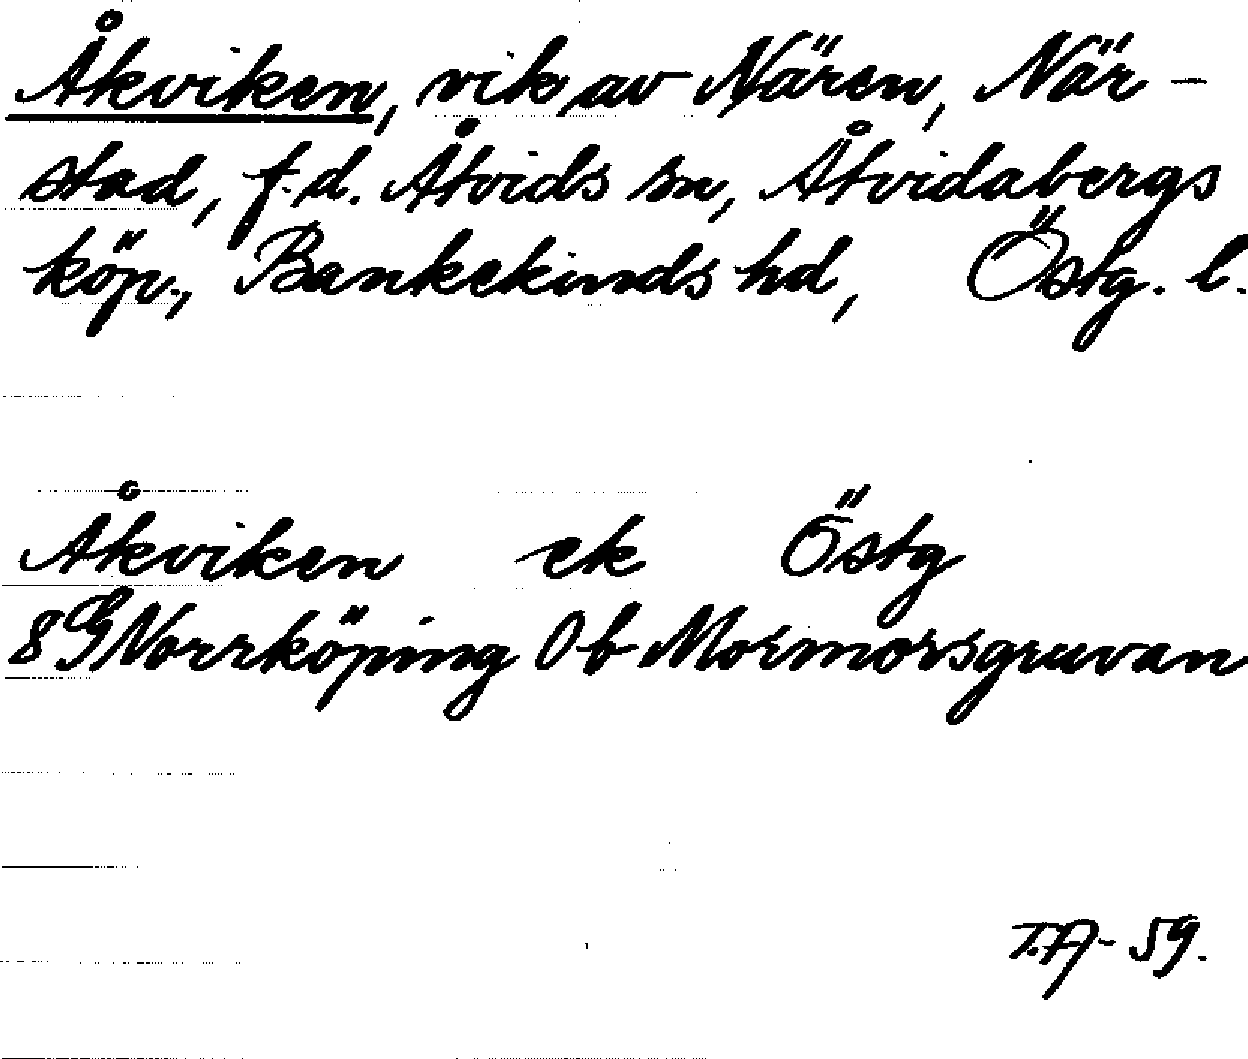 Åkviken, vik av Nären, När-
stad, f.d. Åtvids sn, Åtvidabergs
köp., Bankekinds hd, Östg. l.
Åkviken ek Östg
8G Norrköping 0b Mormorsgruvan
T.A-59.